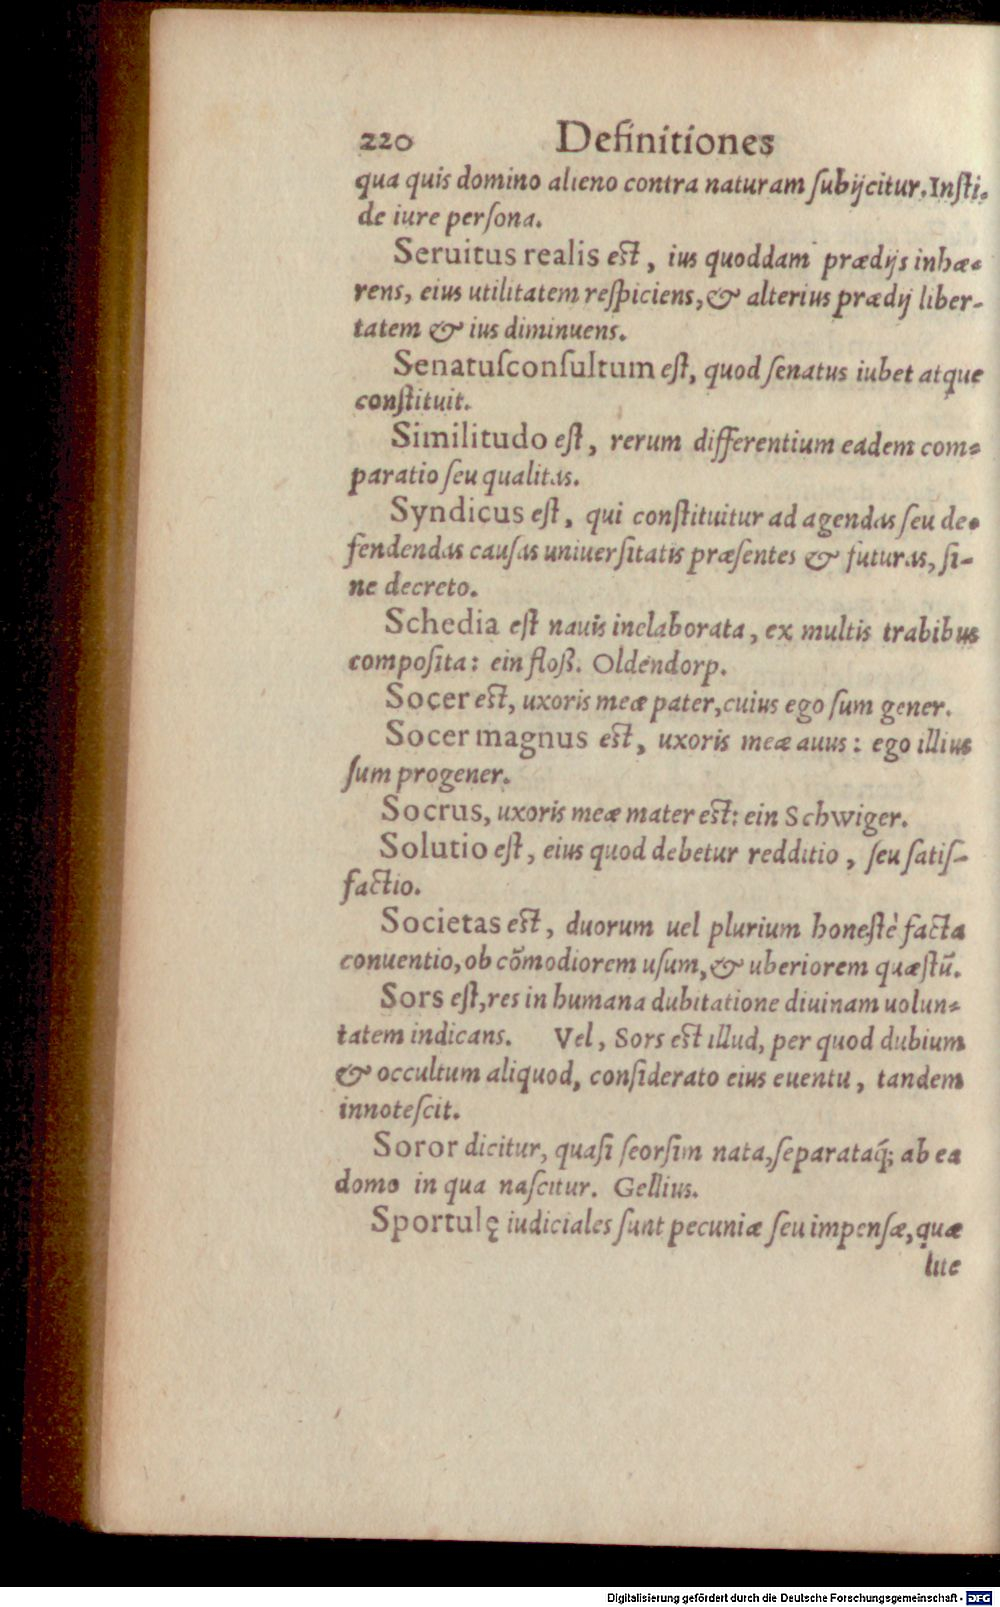 220 Definitiones
qua quis domino alieno contra naturam ſubijcitur. Inſti.
de iure perſona.
Seruitus realis est, ius quoddam prædijs inhæ-
rens, eius utilitatem reſpiciens, & alterius prædij liber-
tatem & ius diminuens.
Senatuſconſultum eſt, quod ſenatus iubet atque
conſtituit.
Similitudo eſt, rerum differentium eadem com-
paratio ſeu qualitas.
Syndicus eſt, qui conſtituitur ad agendas ſeu de-
fendendas cauſas uniuerſitatis præſentes & futuras, ſi-
ne decreto.
Schedia eſt nauis inelaborata, ex multis trabibus
compoſita: ein floß. Oldendorp.
Socer est, uxoris meæ pater, cuius ego ſum gener.
Socer magnus est, uxoris meæ auus: ego illius
ſum progener.
Socrus, uxoris meæ mater est: ein Schwiger.
Solutio eſt, eius quod debetur redditio, ſeu ſatiſ-
factio.
Societas est, duorum uel plurium honeſtè facta
conuentio, ob cõmodiorem uſum, & uberiorem quæſtũ.
Sors eſt, res in humana dubitatione diuinam uolun-
tatem indicans. Vel, Sors est illud, per quod dubium
& occultum aliquod, conſiderato eius euentu, tandem
innoteſcit.
Soror dicitur, quaſi ſeorſim nata, ſeparataq́; ab ea
domo in qua naſcitur. Gellius.
Sportulę iudiciales ſunt pecuniæ ſeu impenſæ, quæ
lite
Digitalisierung gefördert durch die Deutsche Forschungsgemeinschaft - DFG